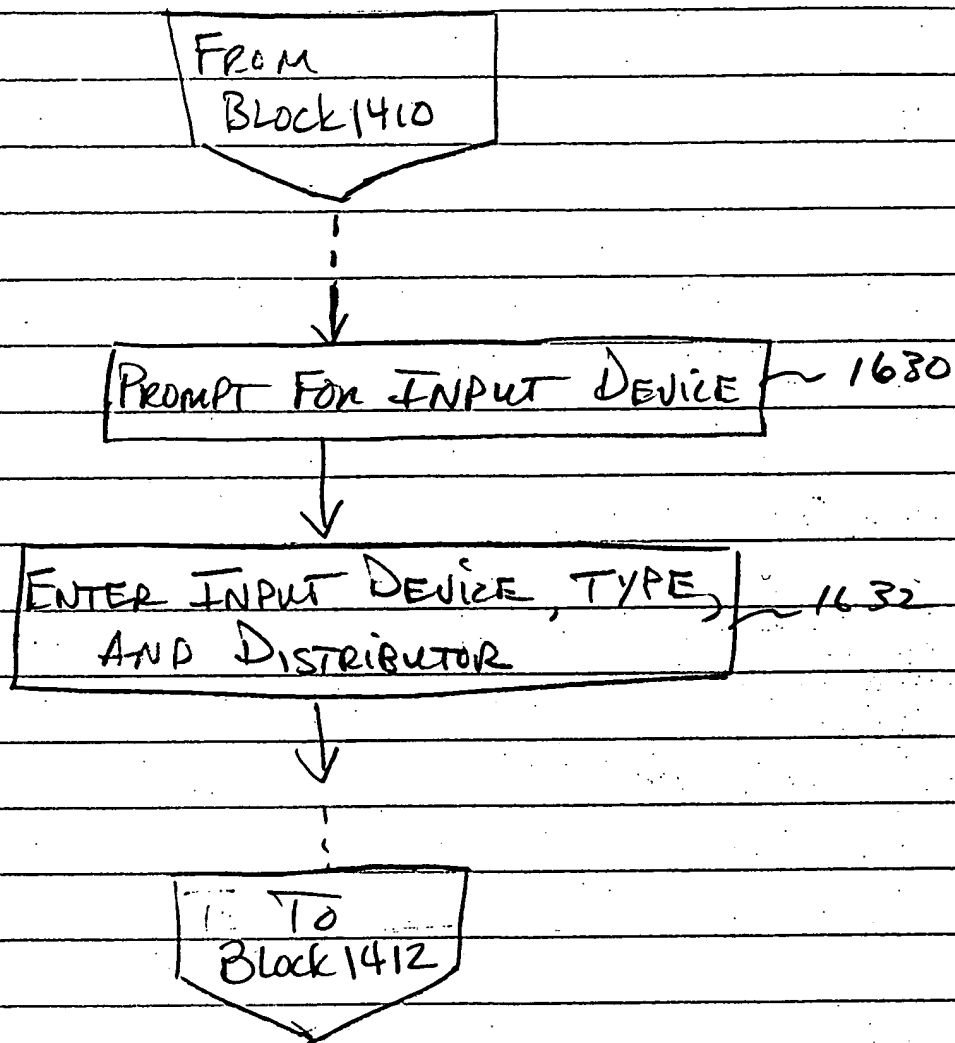 FROM
BLOCK 1410
PROMPT FOR INPUT DEVICE 1630
ENTER INPUT DEVICE, TYPE, 1632
AND DISTRIBUTOR
TO
BLOCK 1412